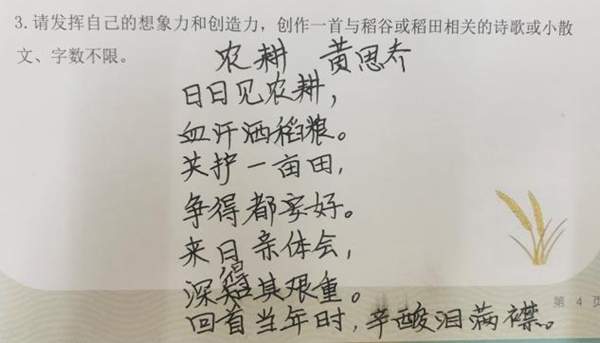 3.请发挥自己的想象力和创造力，创作一首与稻谷或稻田相关的诗歌或小散
文、字数不限。
农耕 黄思乔
日日见农耕，
血汗洒稻粮。
共护一亩田，
争得都安好。
来日亲体会，
深得其艰重。
回首当年时，辛酸泪满襟。
第 4 页